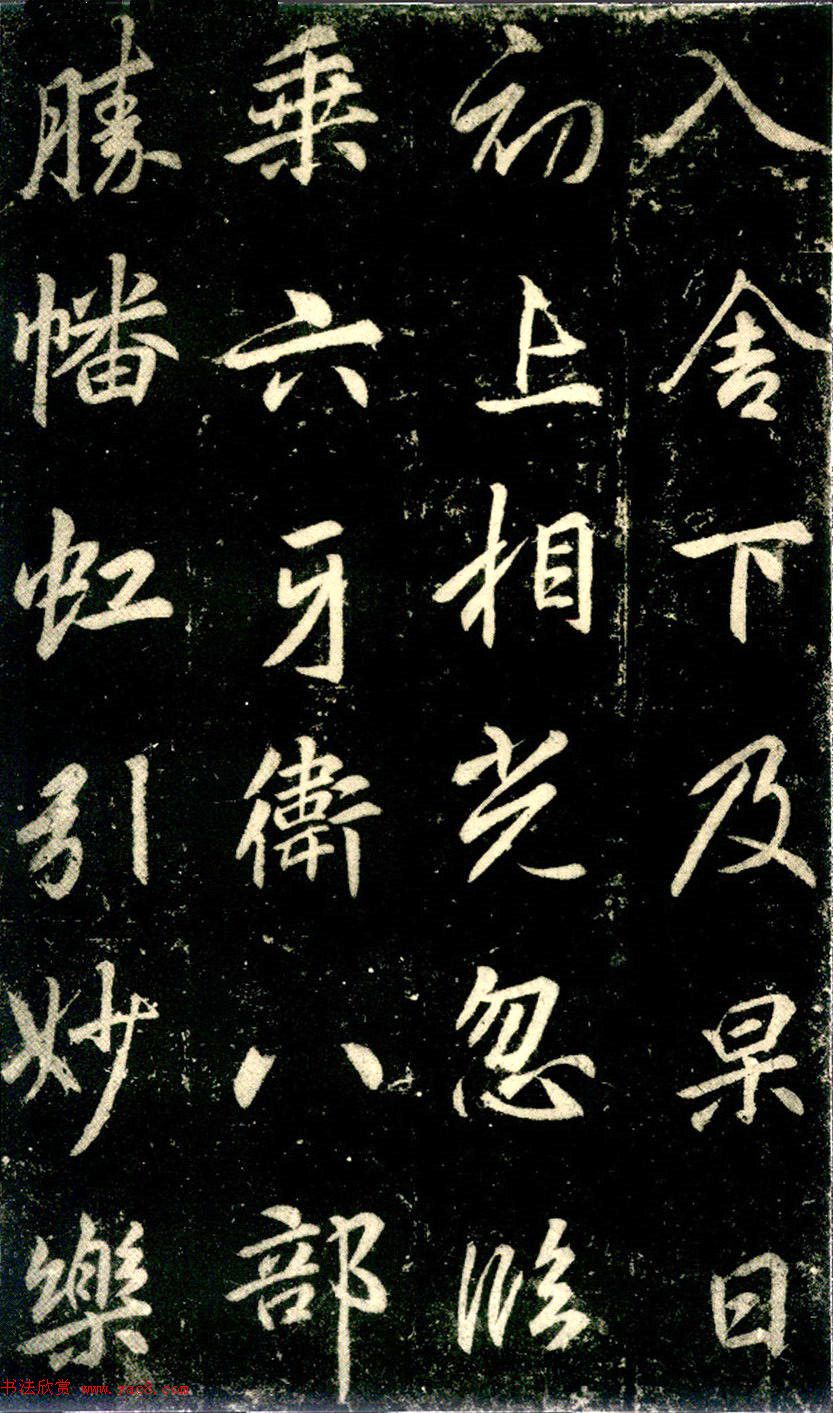 入舍下及杲日
初上相光忽臨
乘六牙衛八部
勝幡虹引妙樂
书法欣赏 www.yac8.com